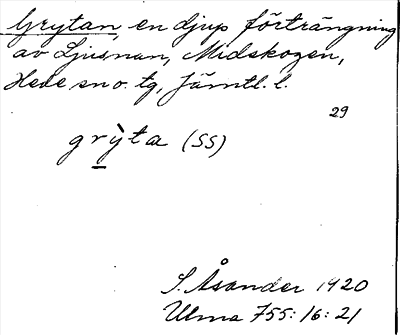 Grytan, en djup förträngning
av Ljusnan, Midskogen,
Hede sn o. tg, Jämtl. l.
29
grỳta (SS)
S. Åsander 1920
Ulma 755:16:21